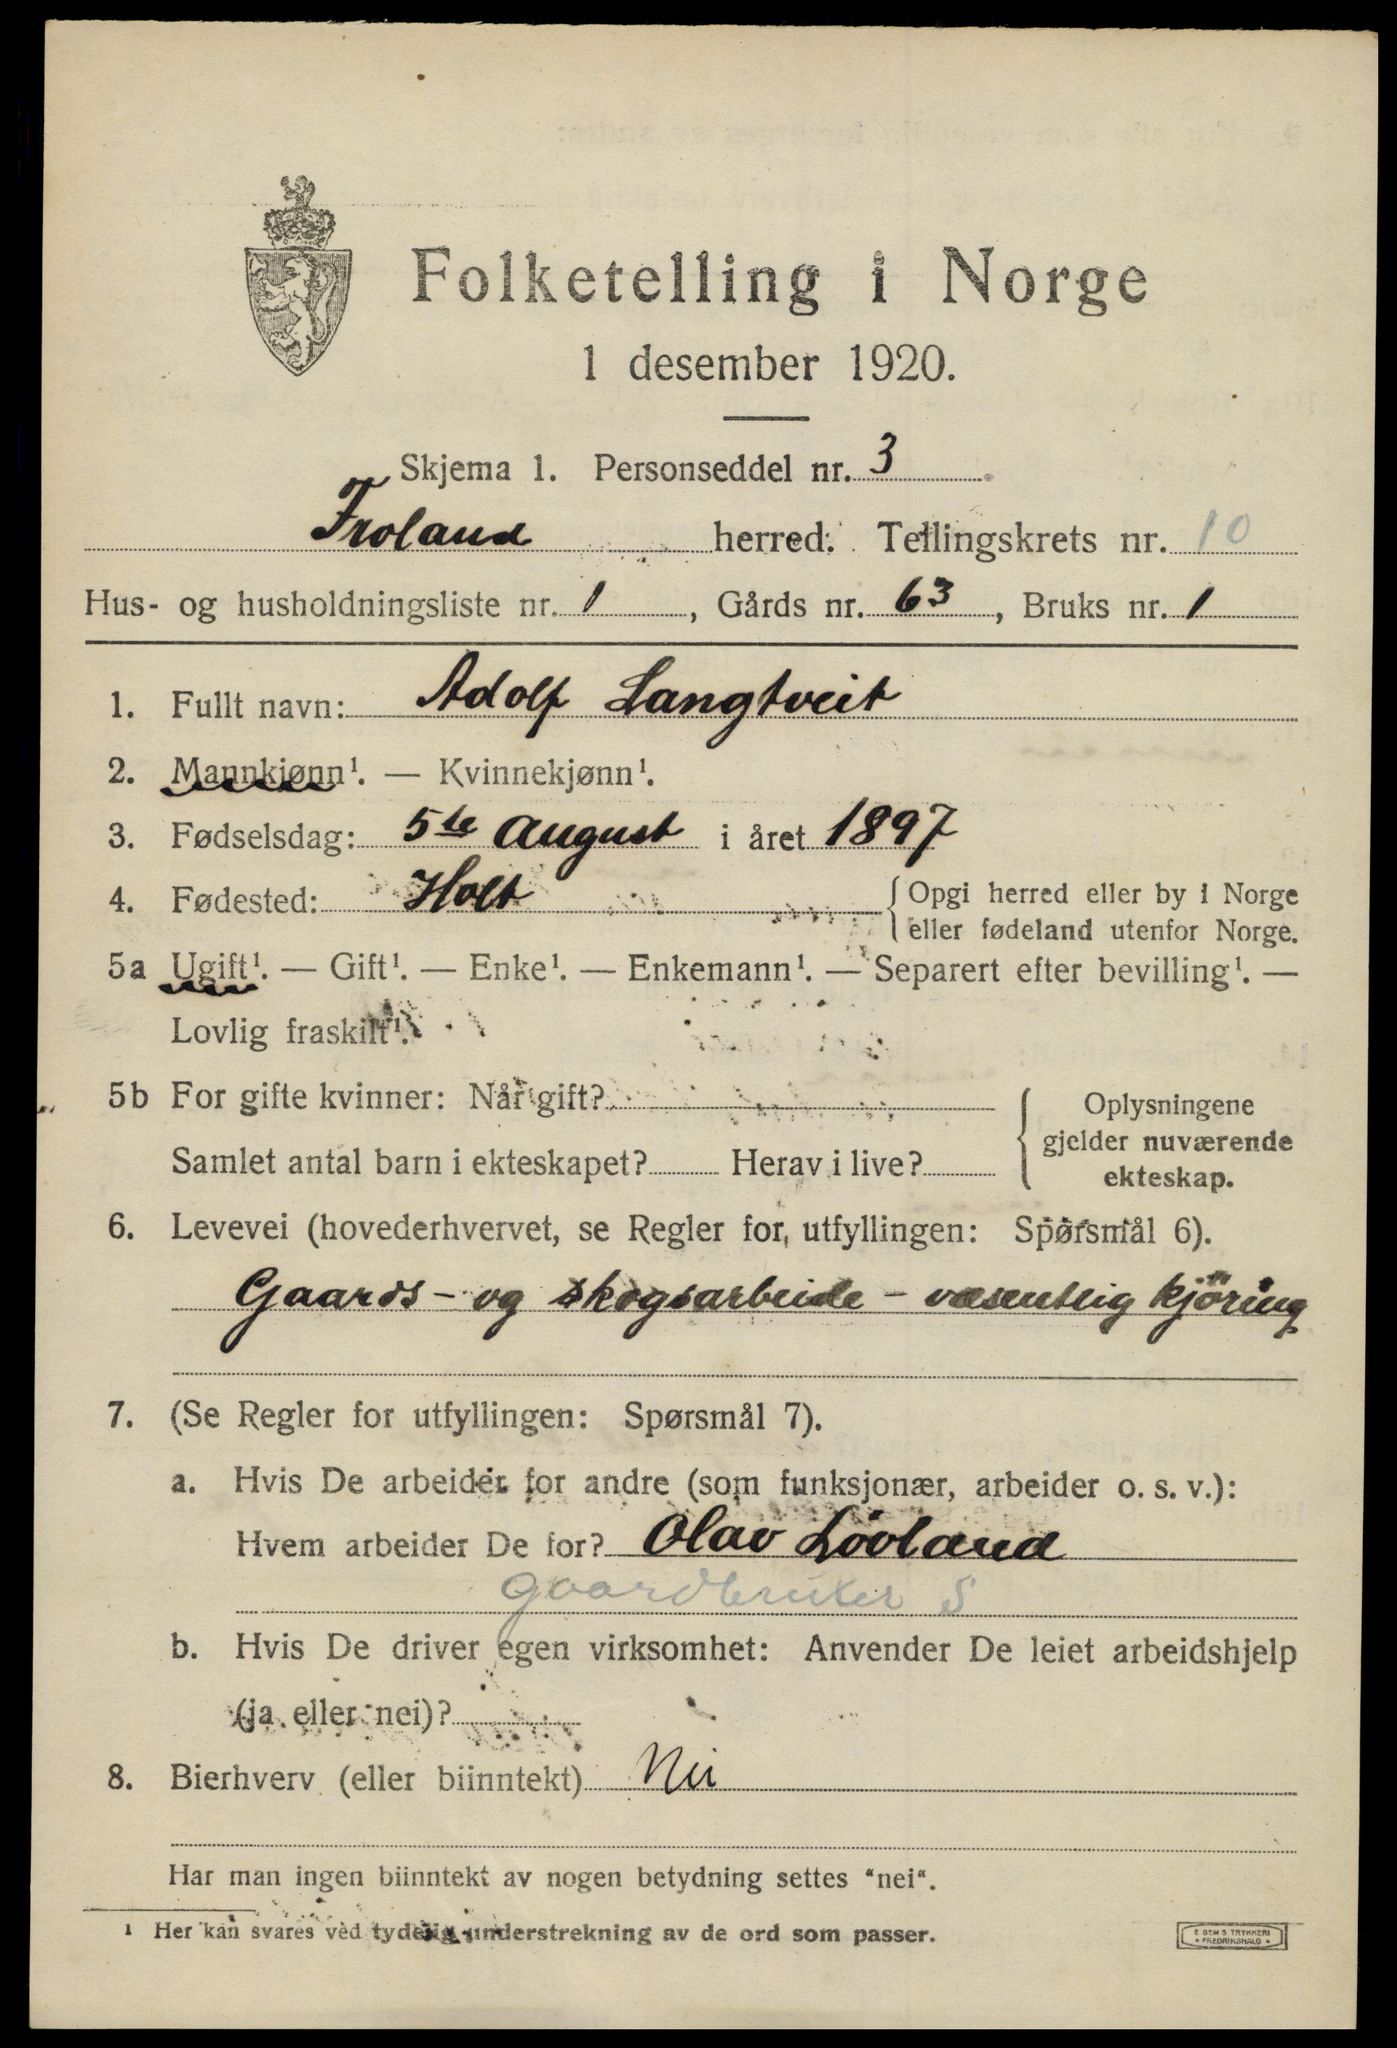 Folketelling i Norge
1 desember 1920.
Skjema 1. Personseddel nr. 3
Froland herred. Tellingskrets nr. 10
Hus- og husholdningsliste nr. 1, Gårds nr. 63, Bruks nr. 1
1. Fullt navn: Adolf Langtveit
2. Mannkjønn¹. — Kvinnekjønn¹.
3. Fødselsdag: 5te August i året 1897
4. Fødested: Holt { Opgi herred eller by i Norge
eller fødeland utenfor Norge.
5a Ugift¹. — Gift¹. — Enke¹. — Enkemann¹. — Separert efter bevilling¹. —
Lovlig fraskilt¹.
5b For gifte kvinner: Når gift?
Samlet antal barn i ekteskapet? Herav i live?
{ Oplysningene
gjelder nuværende
ekteskap.
6. Levevei (hovederhvervet, se Regler for utfyllingen: Spørsmål 6).
Gaards- og skogsarbeide - væsentlig kjöring
7. (Se Regler for utfyllingen: Spørsmål 7).
a. Hvis De arbeider for andre (som funksjonær, arbeider o. s. v.):
Hvem arbeider De for? Olav Lövland
gaardbruker S
b. Hvis De driver egen virksomhet: Anvender De leiet arbeidshjelp
(ja eller nei)?
8. Bierhverv (eller biinntekt) Nei
Har man ingen biinntekt av nogen betydning settes "nei".
¹ Her kan svares ved tydelig understrekning av de ord som passer.
E. SEM'S TRYKKERI
• FREDRIKSHALD •